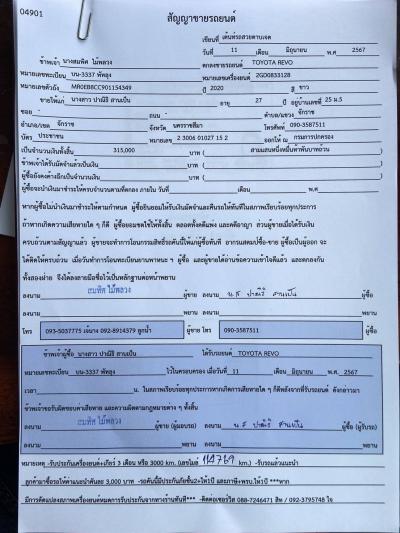 04901
สัญญาขายรถยนต์
เขียนที่ เต้นท์รถสวยตาบเจต
วันที่ 11 เดือน มิถุนายน พ.ศ 2567
ข้าพเจ้า นางสมทิศ ไม้พลวง ตกลงขายรถยนต์ TOYOTA REVO
หมายเลขทะเบียน บน-3337 พัทลุง หมายเลขเครื่องยนต์ 2GD0833128
หมายเลขตัวถัง MR0EB8CC901154349 ปี 2020 สี ขาว
ขายให้แก่ นางสาว ปาณิธิ สานเป็น อายุ 27 ปี อยู่บ้านเลขที่ 25 ม.5
ซอย - ถนน - ตำบล/แขวง จักราช
อำเภอ/เขต จักราช จังหวัด นครราชสีมา โทรศัพท์ 090-3587511
บัตร ประชาชน หมายเลข 2 3006 01027 15 2 ออกให้ ณ กรมการปกครอง
เป็นจำนวนเงินทั้งสิ้น 315,000 บาท ( สามแสนหนึ่งหมื่นห้าพันบาทถ้วน )
ข้าพเจ้าได้รับมัดจำแล้วเป็นเงิน บาท ( )
ผู้ซื้อยังคงค้างอีกเป็นจำนวนเงิน บาท ( )
ผู้ซื้อจะนำเงินมาชำระให้ครบจำนวนตามที่ตกลง ภายใน วันที่ เดือน พ.ศ
หากผู้ซื้อไม่นำเงินมาชำระให้ตามกำหนด ผู้ซื้อยินยอมให้ริบเงินมัดจำและคืนรถให้ทันทีในสภาพเรียบร้อยทุกประการ
ถ้าหากเกิดความเสียหายใด ๆ ก็ดี ผู้ซื้อยอมชดใช้ให้ทั้งสิ้น ตลอดทั้งคดีแพ่ง และคดีอาญา ส่วนผู้ขายเมื่อได้รับเงิน
ครบถ้วนตามสัญญาแล้ว ผู้ขายจะทำการโอนกรรมสิทธิ์รถคันนี้ให้แก่ผู้ซื้อทันที อากรแสตมป์ซื้อ-ขาย ผู้ซื้อเป็นผู้ออก จะ
ได้คิดให้ครบถ้วน เมื่อวันทำการโอนทะเบียนยานพาหนะ ฯ ผู้ซื้อ และผู้ขายได้อ่านข้อความเข้าใจดีแล้ว และตกลงกัน
ทั้งสองฝ่าย จึงได้ลงลายมือชื่อไว้เป็นหลักฐานต่อหน้าพยาน
ลงนาม สมทิศ ไม้พลวง ผู้ขาย ลงนาม น.ส ปาณิธิ สานเป็น ผู้ซื้อ
ลงนาม พยาน ลงนาม พยาน
โทร 093-5037775 เจ้นาง 092-8914379 ลูกน้ำ ผู้ขาย โทร 090-3587511 ผู้ซื้อ
ข้าพเจ้าผู้ซื้อ นางสาว ปาณิธิ สานเป็น ได้รับรถยนต์ TOYOTA REVO
หมายเลขทะเบียน บน-3337 พัทลุง ไว้ในครอบครอง เมื่อวันที่ 11 เดือน มิถุนายน พ.ศ. 2567
เวลา น. ในสภาพเรียบร้อยทุกประการหากเกิดการเสียหายใด ๆ ก็ดีหลังจากที่รับรถยนต์ ดังกล่าวมา
ข้าพเจ้าขอรับผิดชอบค่าเสียหาย และความผิดตามกฎหมายต่าง ๆ ทั้งสิ้น
ลงนาม สมทิศ ไม้พลวง ผู้ขาย (ผู้มอบรถ) ลงนาม น.ส ปาณิธิ สานเป็น ผู้ซื้อ (ผู้รับรถ)
ลงนาม พยาน ลงนาม พยาน
หมายเหตุ -รับประกันเครื่องยนต์+เกียร์ 3 เดือน หรือ 3000 km. (เลขไมล์ 114769 km.) -รับรถแล้วแนะนำ
ลูกค้ามาซื้อรถให้ค่าแนะนำคันละ 3,000 บาท -รถคันนี้มีประกันภัยชั้น2+ให้1ปี และภาษี+พรบ.ให้1ปี ***หาก
มีการดัดแปลงสภาพเครื่องยนต์หมดการรับประกันจากทางร้านทันที*** -ติดต่อเซอร์วิส 088-7246471 สิท / 092-3795748 ใจ